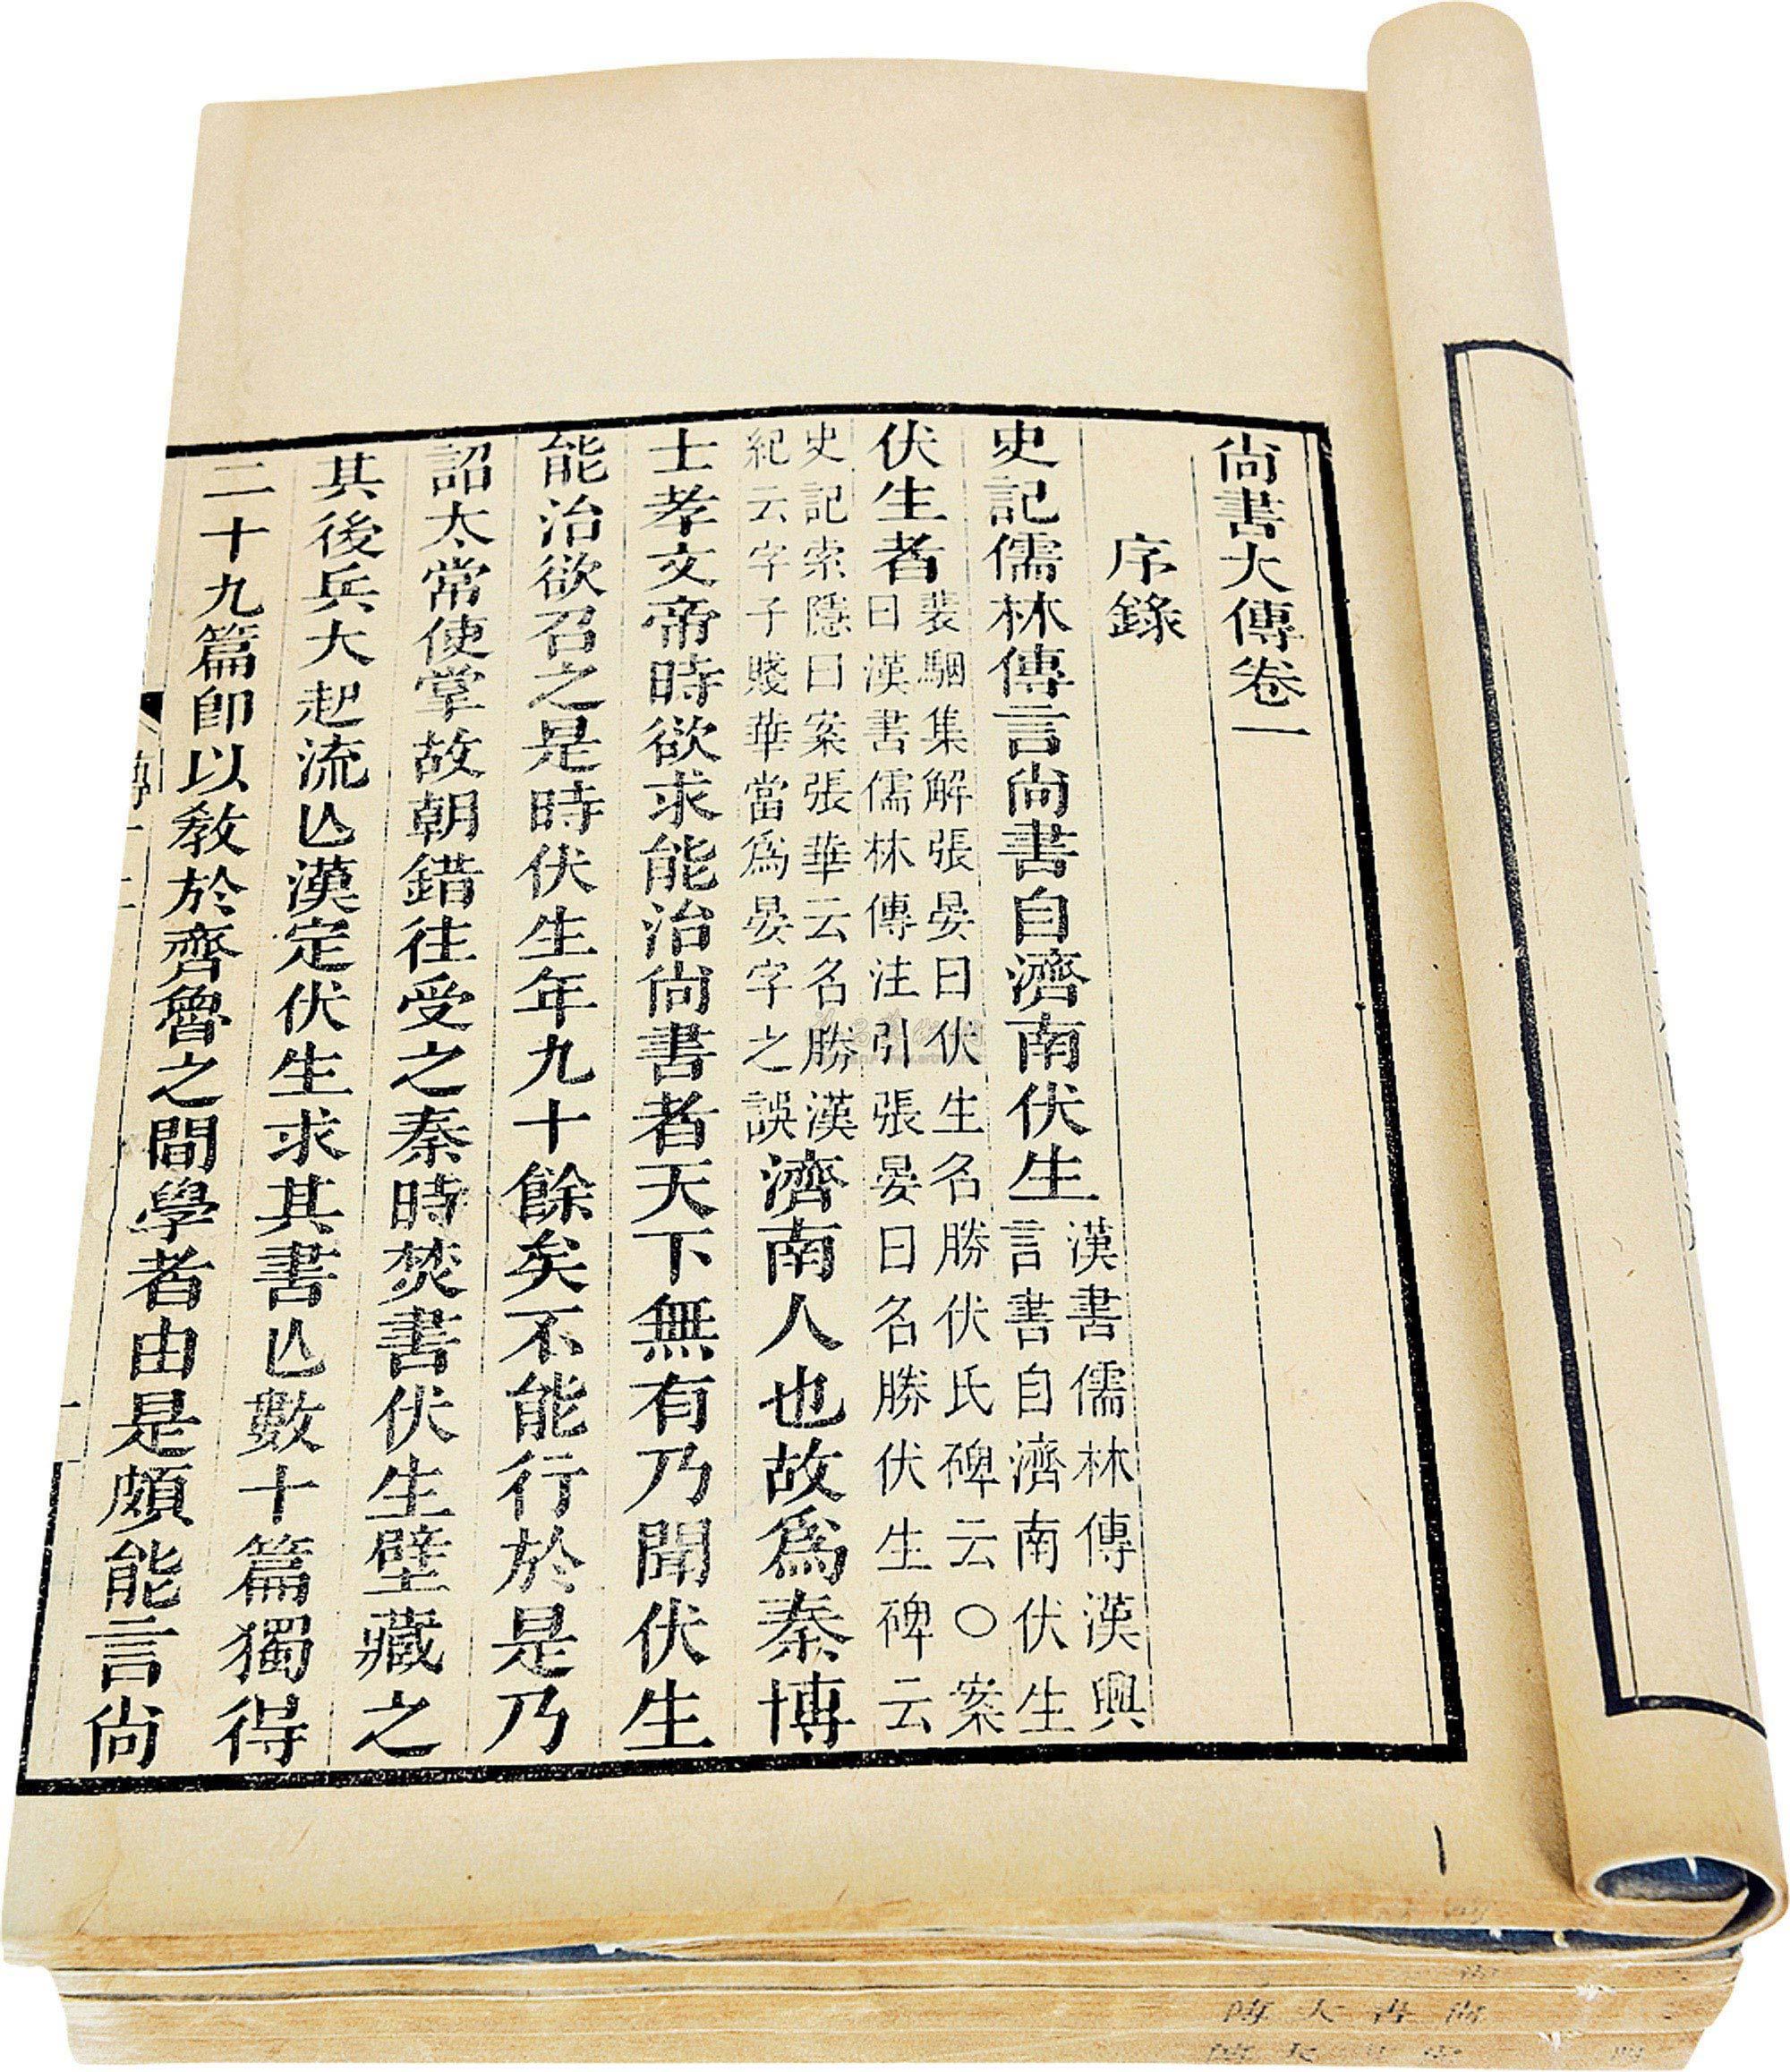 尚書大傳卷一
序錄
史記儒林傳言尚書自濟南伏生漢書儒林傳漢興言書自濟南伏生
伏生者裴駰集解張晏曰伏生名勝伏氏碑云○案曰漢書儒林傳注引張晏曰名勝伏生碑云
史記索隱曰案張華云名勝漢紀云字子賤華當爲晏字之誤濟南人也故爲秦博
士孝文帝時欲求能治尚書者天下無有乃聞伏生
能治欲召之是時伏生年九十餘矣不能行於是乃
詔太常使掌故朝錯往受之秦時焚書伏生壁藏之
其後兵大起流亾漢定伏生求其書亾數十篇獨得
二十九篇卽以敎於齊魯之間學者由是頗能言尚
傳大書尚